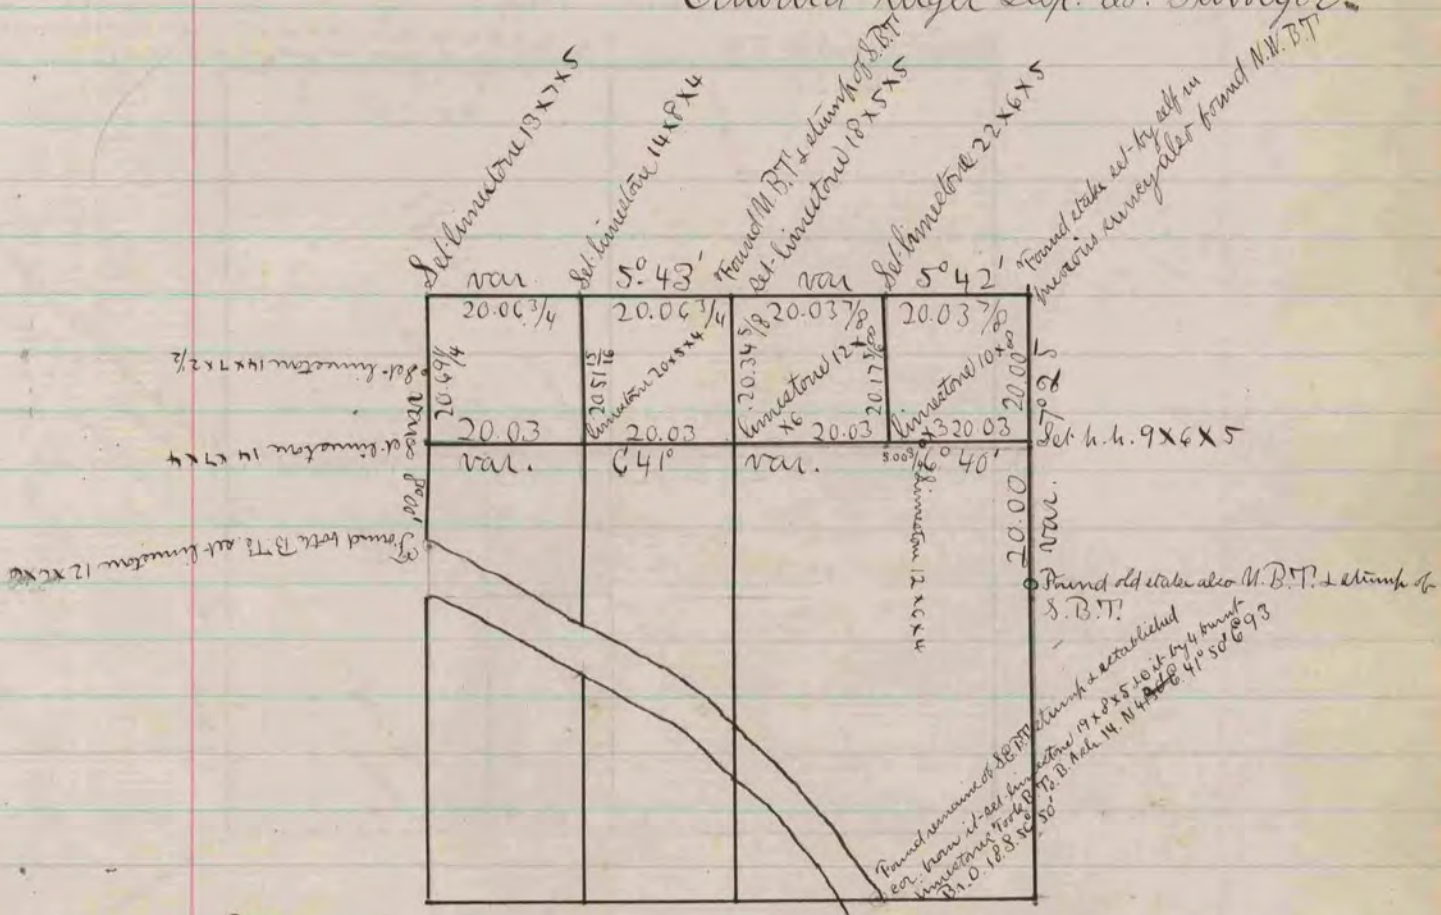 Dep. Co. Surveyor.
Set limestone 13 x 7 x 5
Set limestone 14 x 8 x 4
Found N.B.T. & stump of S.B.T.
Set limestone 18 x 5 x 5
Set limestone 22 x 6 x 5
Found stake set by self in
previous survey also found N.W.B.T
var. 5° 43' var 5° 42'
20.06 3/4 20.06 3/4 20.03 7/8 20.03 7/8
Set limestone 14 x 7 x 2 1/2
20.69 1/4
20 51 15/16
limestone 20 x 5 x 4
20.34 5/8
limestone 12 x
x 6
20.17
limestone 10 x
x 3
20.00
7° 25
20.03 20.03 20.03 20 03
Set h.h. 9 x 6 x 5
Set limestone 14 x 7 x 4
var. 6 41° var. 6° 40'
var 8° 00'
5.00
Limestone 12 x 6 x 4
20.00
var.
Found both B.Ts. set limestone 12 x 6 x 6
Found old stake also N.B.T. & stump of
S.B.T.
Found remains of S.E.B.T. stump & established
cor. from it set limestone 19 x 8 x 5 & by 4 burnt
limestones Took B.Ts. B. Ash. 14. N 41° 50' E 93
B.O. 18. S. 50'